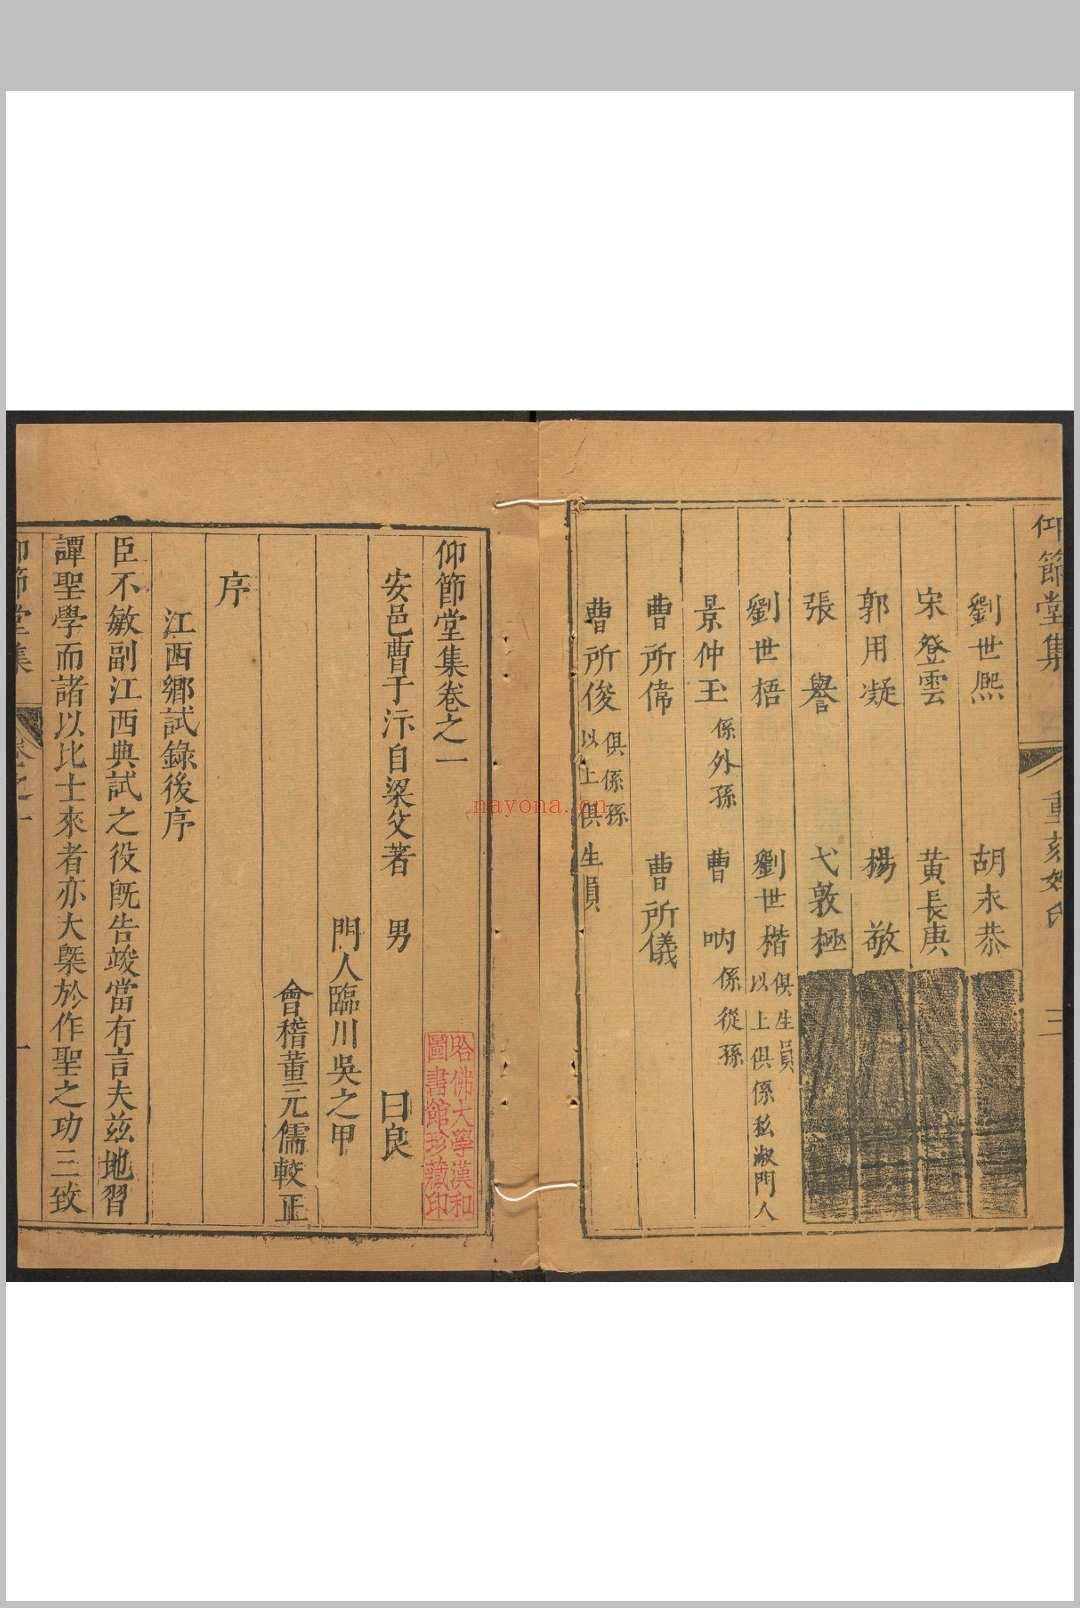 仰節堂集 重刻姓氏 三
劉世熙 胡永恭
宋登雲 黃長庚
郭用凝 楊敬
張譽 弋敦極
劉世梧 劉世楷 俱生員
以上俱係私淑門人
景仲玉 係外孫 曹吶 係從孫
曹所偉 曹所儀
曹所俊 俱係孫
以上俱生員
仰節堂集卷之一
安邑曹于汴自梁父著 男 曰良
門人臨川吳之甲
會稽董元儒較正
序
江西鄉試錄後序
臣不敏副江西典試之役旣告竣當有言夫兹地習
譚聖學而諸以比士來者亦大槩於作聖之功三致
仰節堂集 卷之一 一
哈佛大學漢和
圖書館珍藏印
nayona.cn